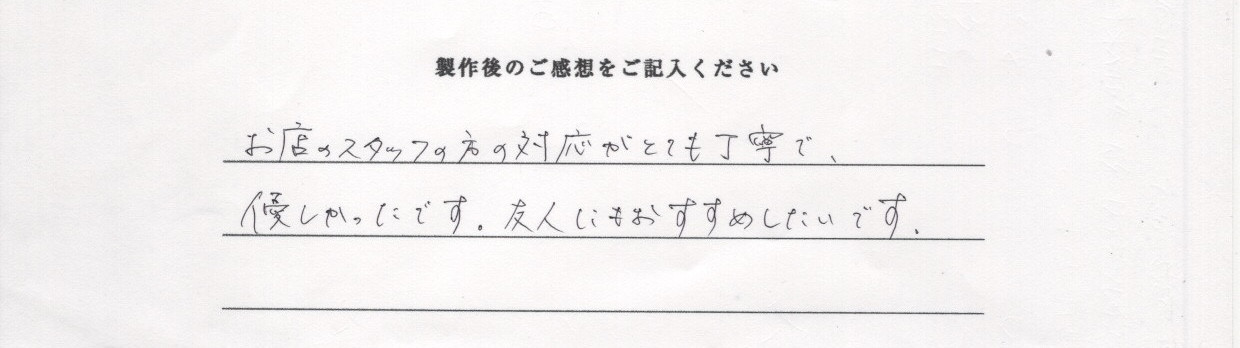 製作後のご感想をご記入ください
お店のスタッフの方の対応がとても丁寧で、
優しかったです。友人にもおすすめしたいです。